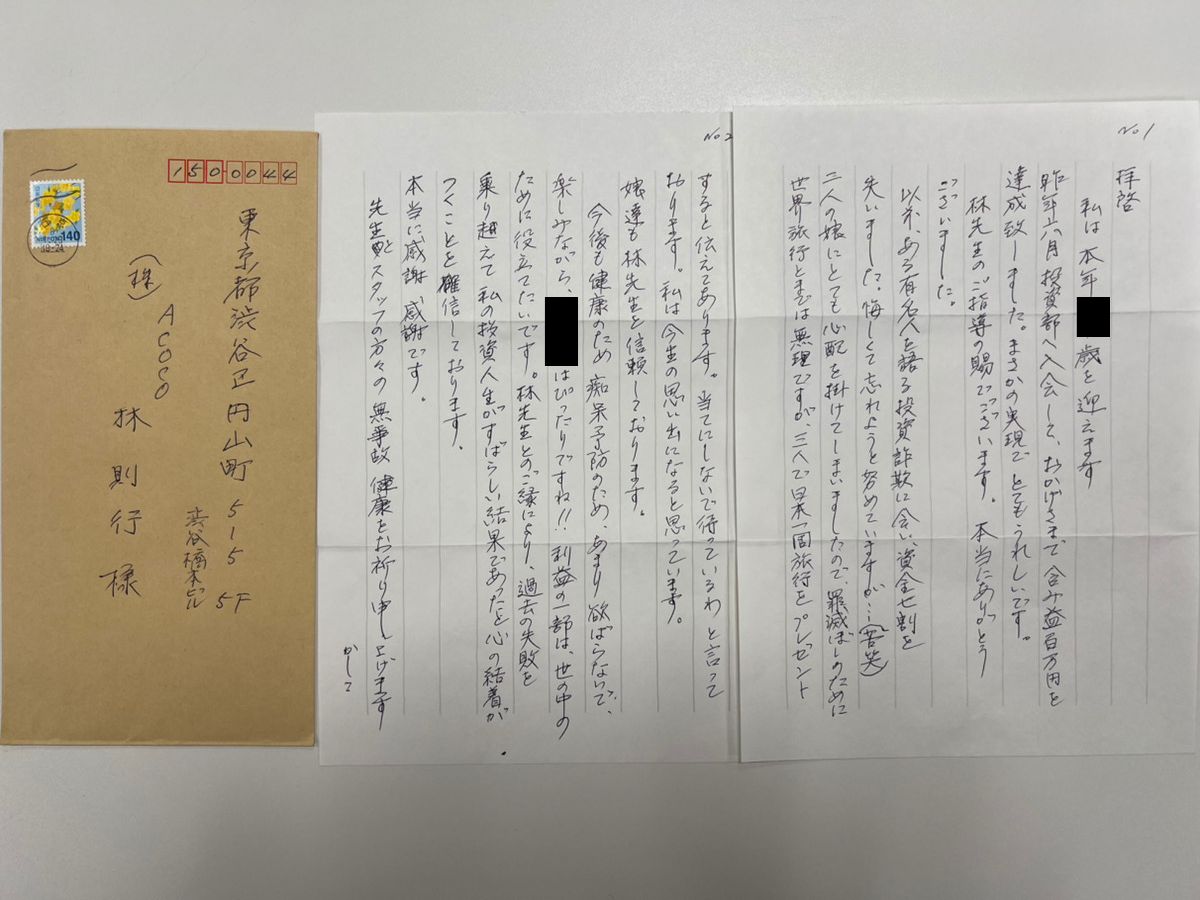 1500044
東京都渋谷区円山町5-15
渋谷橋本ビル5F
(株)ACOCO
林則行様
140
No1
拝啓
私は本年 歳を迎えます
昨年六月投資部へ入会して、おかげさまで含み益百万円を
達成致しました。まさかの実現でとてもうれしいです。
林先生のご指導の賜でございます。本当にありがとう
ございました。
以前、ある有名人を語る投資詐欺に会い、資金七割を
失いました。悔しくて忘れようと努めていますが…(苦笑)
二人の娘にとても心配を掛けてしまいましたので、罪滅ぼしのために
世界旅行とまでは無理ですが、三人で日本一周旅行をプレゼント
No2
すると伝えてあります。当てにしないで待っているわと言って
おります。私は今生の思い出になると思っています。
娘達も林先生を信頼しております。
今後も健康のため痴呆予防のため、あまり欲ばらないで、
楽しみながら、 はぴったりですね!!利益の一部は、世の中の
ために役立てたいです。林先生とのご縁により、過去の失敗を
乗り越えて私の投資人生がすばらしい結果であったと心の結着が
つくことを確信しております。
本当に感謝感謝です。
先生とスタッフの方々の無事故健康をお祈り申し上げます
かしこ